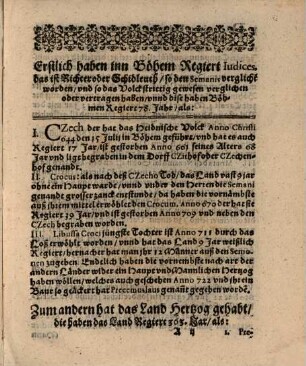 Erstlich haben inn Böhem Regiert Iudices,
das ist Richter oder Schidleuth / so den Semanis verglicht
worden / vnd so das Volck stritig gewesen verglichen
oder vertragen haben / vnnd dise haben Böh-
men Regiert 78. Jahr / als:
I. CZech der hat das Heidnische Volck Anno Christi
644 den 15 Julii in Böhem geführt / vnd hat es auch
Regiert 17 Jar / ist gestorben Anno 661 seines Alters 68
Jar vnd ligt begraben in dem Dorff CZishof oder CZechen-
hof genandt.
II. Crocus: als nach deß CZecho Todt / das Land vast 9 jar
ohne ein Haupt warde / vnnd vnder den Herren die Semani
genandt grosser zanck entstunde / da haben die vornämbste
auß jhnen einen erwöhlet der den Crocum, Anno 670 der hat sie
Regiert 39 Jar / vnd ist gestorben Anno 709 vnd neben den
CZech begraben worden.
III. Libussa Croci jüngste Tochter ist Anno 711 durch das
Loß erwöhlt worden / vnnd hat das Land 9 Jar weißlich
Regiert / hernacher hat man jhr 12 Männer auß den Se-
menen zugeben Endtlich haben die vornembste nach art der
andern Länder wider ein Haupt vnd Mannlichen Hertzog
haben wöllen / welches auch geschehen Anno 722 vnd jhr ein
Baur so geäckert hat Przemislaus genant gegeben worden.
Zum andern hat das Land Hertzog gehabt /
die haben das Land Regiert 363. Jar / als:
A ij
1. Pre-